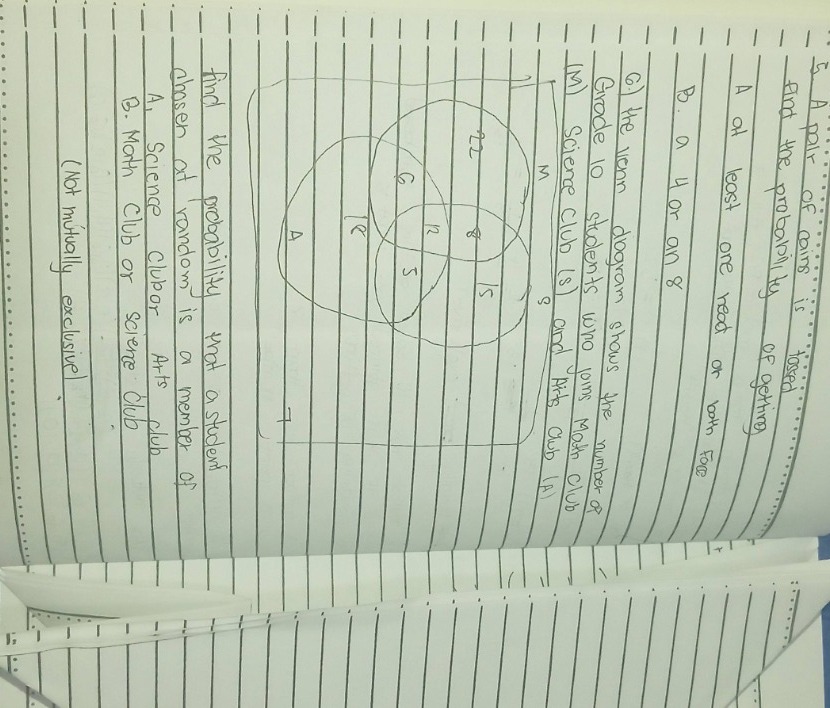 5. A pair of coins is tossed
find the probability of getting
A at least one head or both Face
B. a 4 or an 8
6.) the venn diagram shows the number of
Grade 10 students who joins Math Club
(M) Science Club (S) and Arts Club (A)
M S
22 8 15
6 12 5
18
A 7
find the probability that a student
chosen at random is a member of
A. Science Club or Arts club
B. Math Club or Science Club
(Not mutually exclusive)